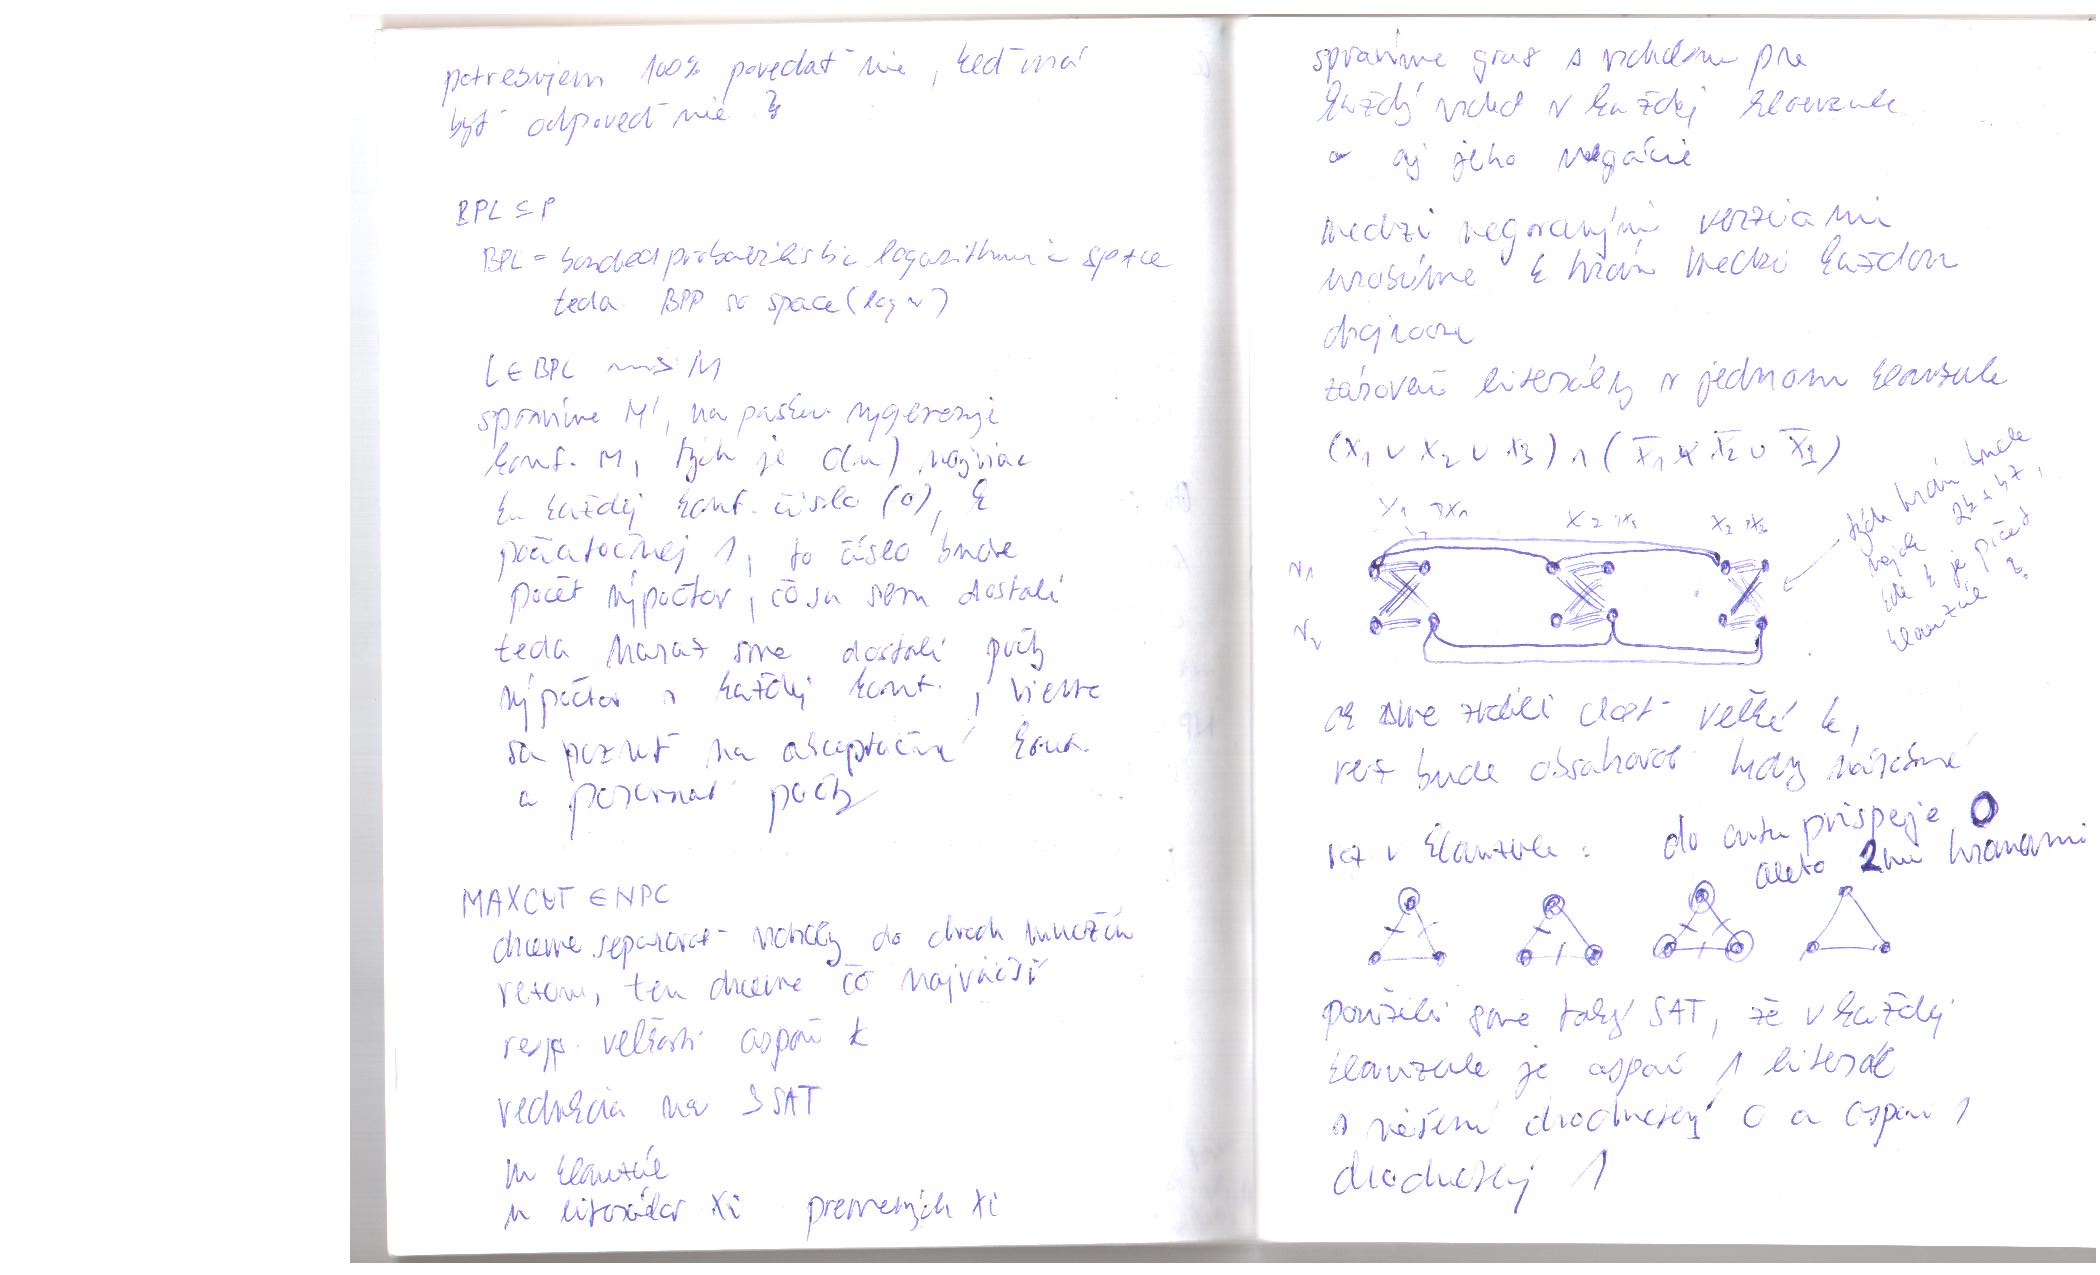 potrebujem 100% povedať nie, keď má
byť odpoveď nie?
BPL ⊆ P
BPL = bounded probabilistic logarithmic space
teda BPP so space(log n)
L ∈ BPL ⇝ M
spravíme M', na pásku vygeneruje
konf. M, tých je O(n) najviac
ku každej konf. číslo (0), k
počiatočnej 1, to číslo bude
počet výpočtov, čo sa sem dostali
teda naraz sme dostali počty
výpočtov v každej konf., vieme
sa pozrieť na akceptačné konf.
a porovnať počty
MAXCUT ∈ NPC
chceme separovať vrcholy do dvoch množín
rezom, ten chceme čo najväčší
resp. veľkosti aspoň k
redukcia na 3SAT
m klauzúl
n literálov xi premenných xi
spravíme graf s vrcholom pre
každý vrchol v každej klauzule
a aj jeho negácie
medzi negovanými verziami
urobíme k hrán medzi každou
dvojicou
zároveň literály v jednom klauzule
(x1 ∨ x2 ∨ x3) ∧ (x̅1 ∨ x̅2 ∨ x̅3)
x1 ¬x1 x2 ¬x2 x2 ¬x3
v1
v2
tých hrán bude
kde k je počet
klauzúl?
ak sme zvolili dosť veľké k,
rez bude obsahovať hrany
rez v klauzule: do cutu prispeje 0
alebo 2mi hranami
použili sme taký SAT, že v každej
klauzule je aspoň 1 literál
v riešení ohodnotený 0 a aspoň 1
ohodnotený 1